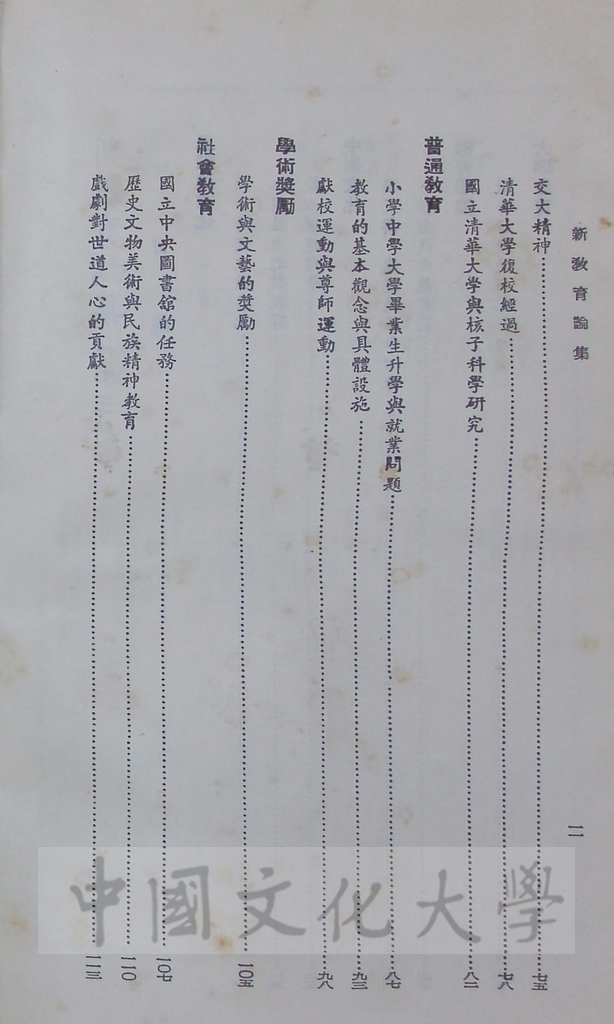 新教育論集
二
交大精神……七五
清華大學復校經過……七八
國立清華大學與核子科學研究……八二
普通教育
小學中學大學畢業生升學與就業問題……八七
教育的基本觀念與具體設施……九三
獻校運動與尊師運動……九八
學術獎勵
學術與文藝的獎勵……一〇五
社會教育
國立中央圖書館的任務……一〇七
歷史文物美術與民族精神教育……一一〇
戲劇對世道人心的貢獻……一一三
中國文化大學